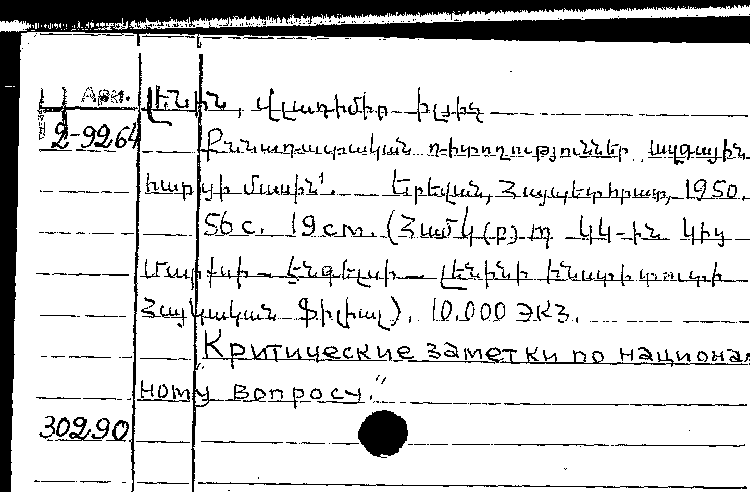 Ц Арм. Լենին, Վլադիմիր Իլյիչ
2-9264 Քննադատական դիտողություններ ազգային
հարցի մասին. Երեվան, Հայպետհրատ, 1950.
56 с. 19 см. (Համկ(բ)պ ԿԿ-ին կից
Մարքսի-Էնգելսի-Լենինի ինստիտուտի
Հայկական Ֆիլիալ). 10.000 ЭКЗ.
"Критические заметки по национал
ному вопросу."
30290